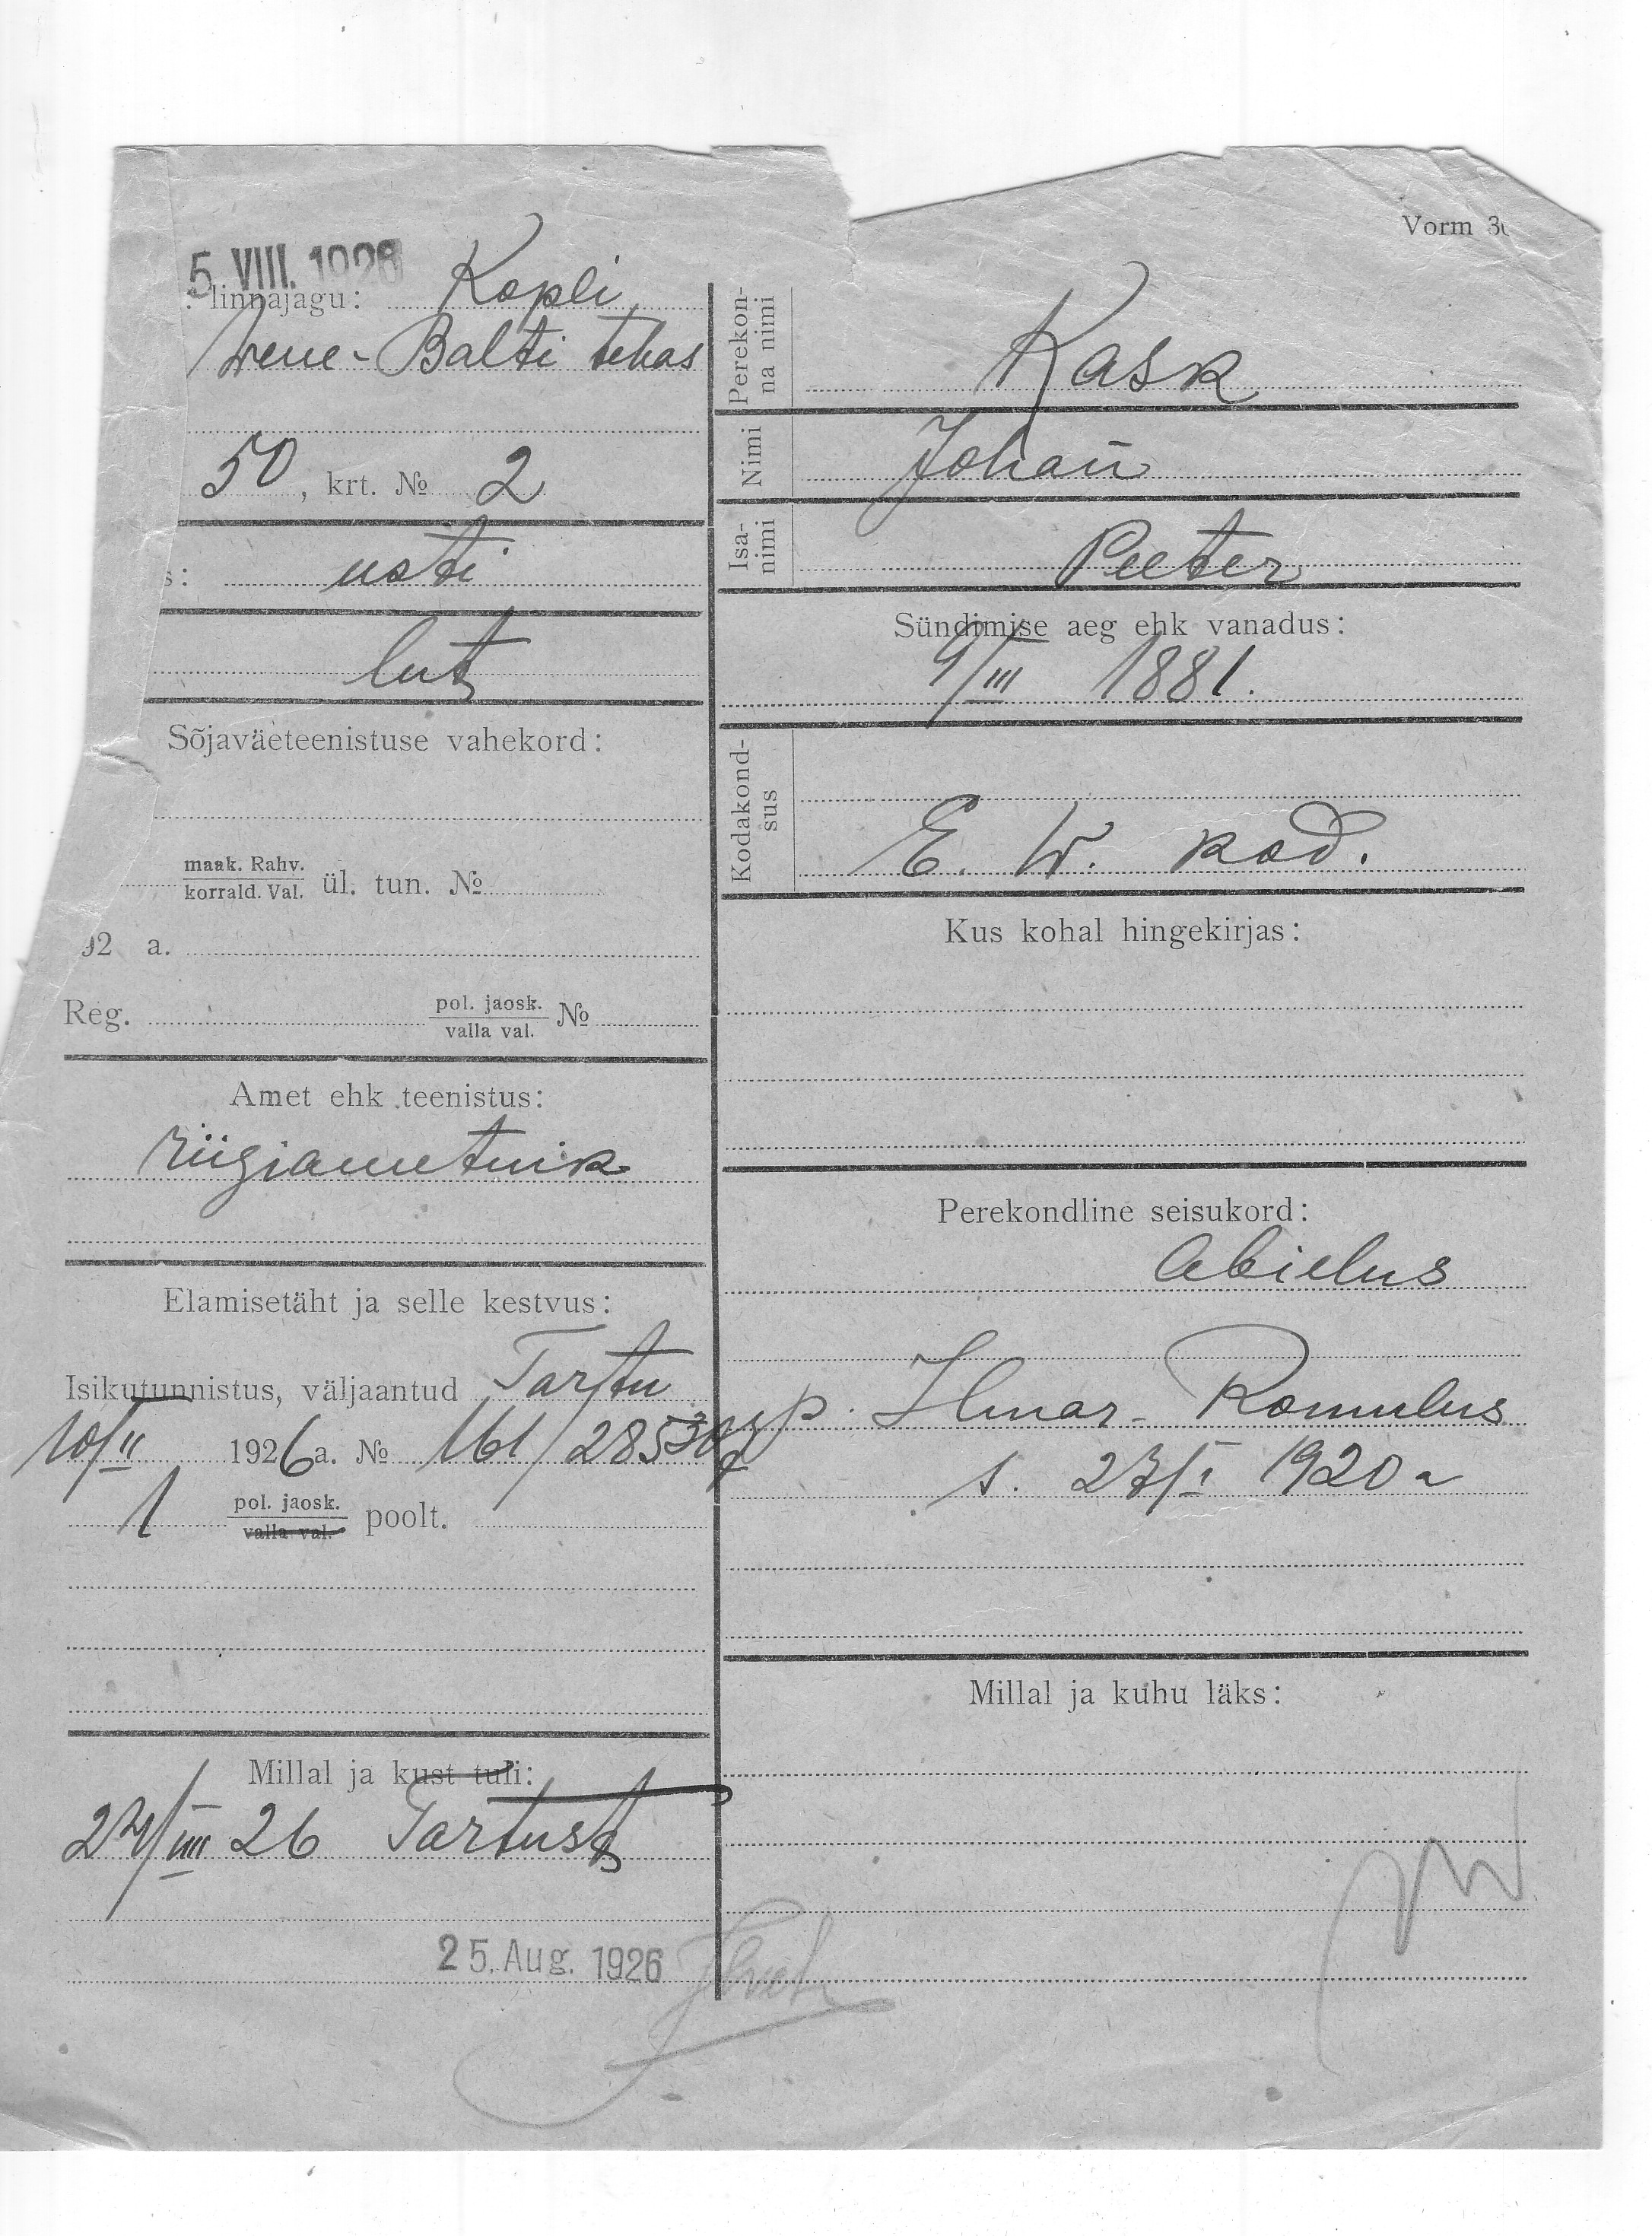 Vorm 3
5. VIII. 1926
linnajagu: Kopli
Wene-Balti tehas
50, krt. № 2
s: eesti
lut
Sõjaväeteenistuse vahekord:
maak. Rahv.
korrald. Val. ül. tun. №
92 a.
Reg. pol. jaosk.
valla val. №
Amet ehk teenistus:
riigiametnik
Elamisetäht ja selle kestvus:
Isikutunnistus, väljaantud Tartu
10/II 1926 a. № 161/28530
1 pol. jaosk.
valla val. poolt.
Millal ja kust tuli:
VIII 26 Tartust
25. Aug. 1926
Perekon-
na nimi Kask
Nimi Johan̄
Isa-
nimi Peeter
Sündimise aeg ehk vanadus:
9/III 1881.
Kodakond-
sus E. W. kod.
Kus kohal hingekirjas:
Perekondline seisukord:
Abielus
p. Ilmar-Romulus
s. 27/I 1920 a
Millal ja kuhu läks: